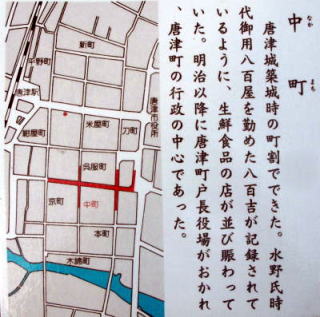 なか まち
中町
唐津城築城時の町割でできた。水野氏時
代御用八百屋を勤めた八百吉が記録されて
いるように、生鮮食品の店が並び賑わって
いた。明治以降に唐津町戸長役場がおかれ
、唐津町の行政の中心であった。
新町
平野町
唐津駅
米屋町
刀町
唐津市役所
紺屋町
呉服町
京町
中町
本町
木綿町